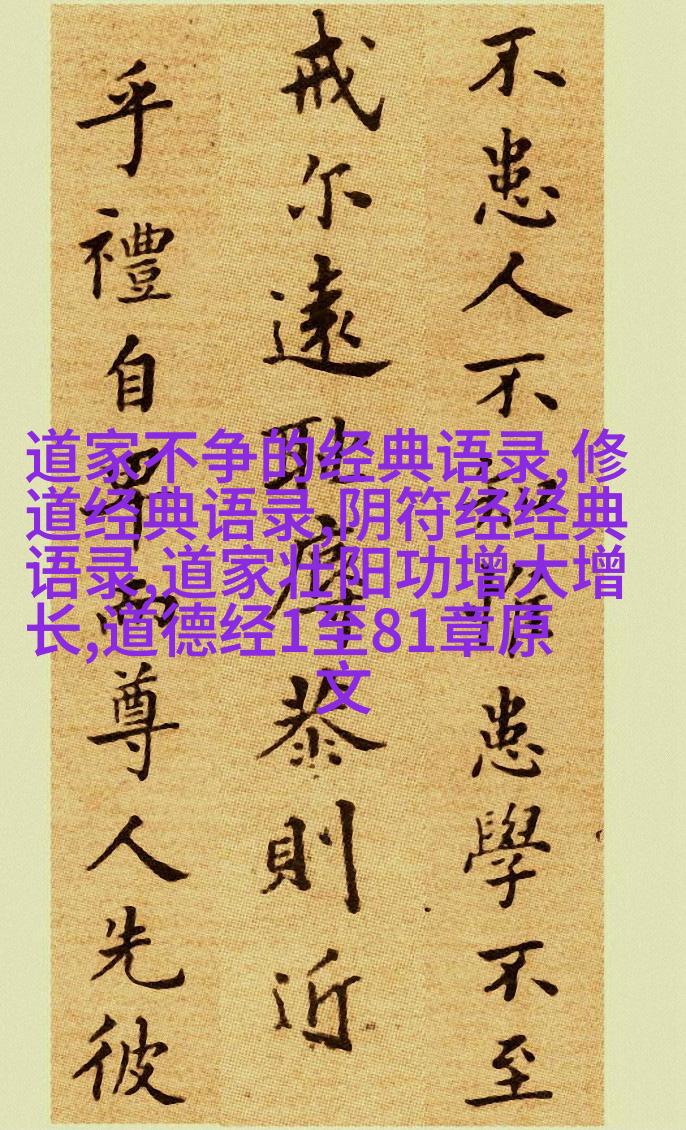 不患人不知惟患學不至
戒尔遠恥辱恭則近
乎禮自卑而尊人先彼
道家不争的经典语录,修
道经典语录,阴符经经典
语录,道家壮阳功增大增
长,道德经1至81章原
文